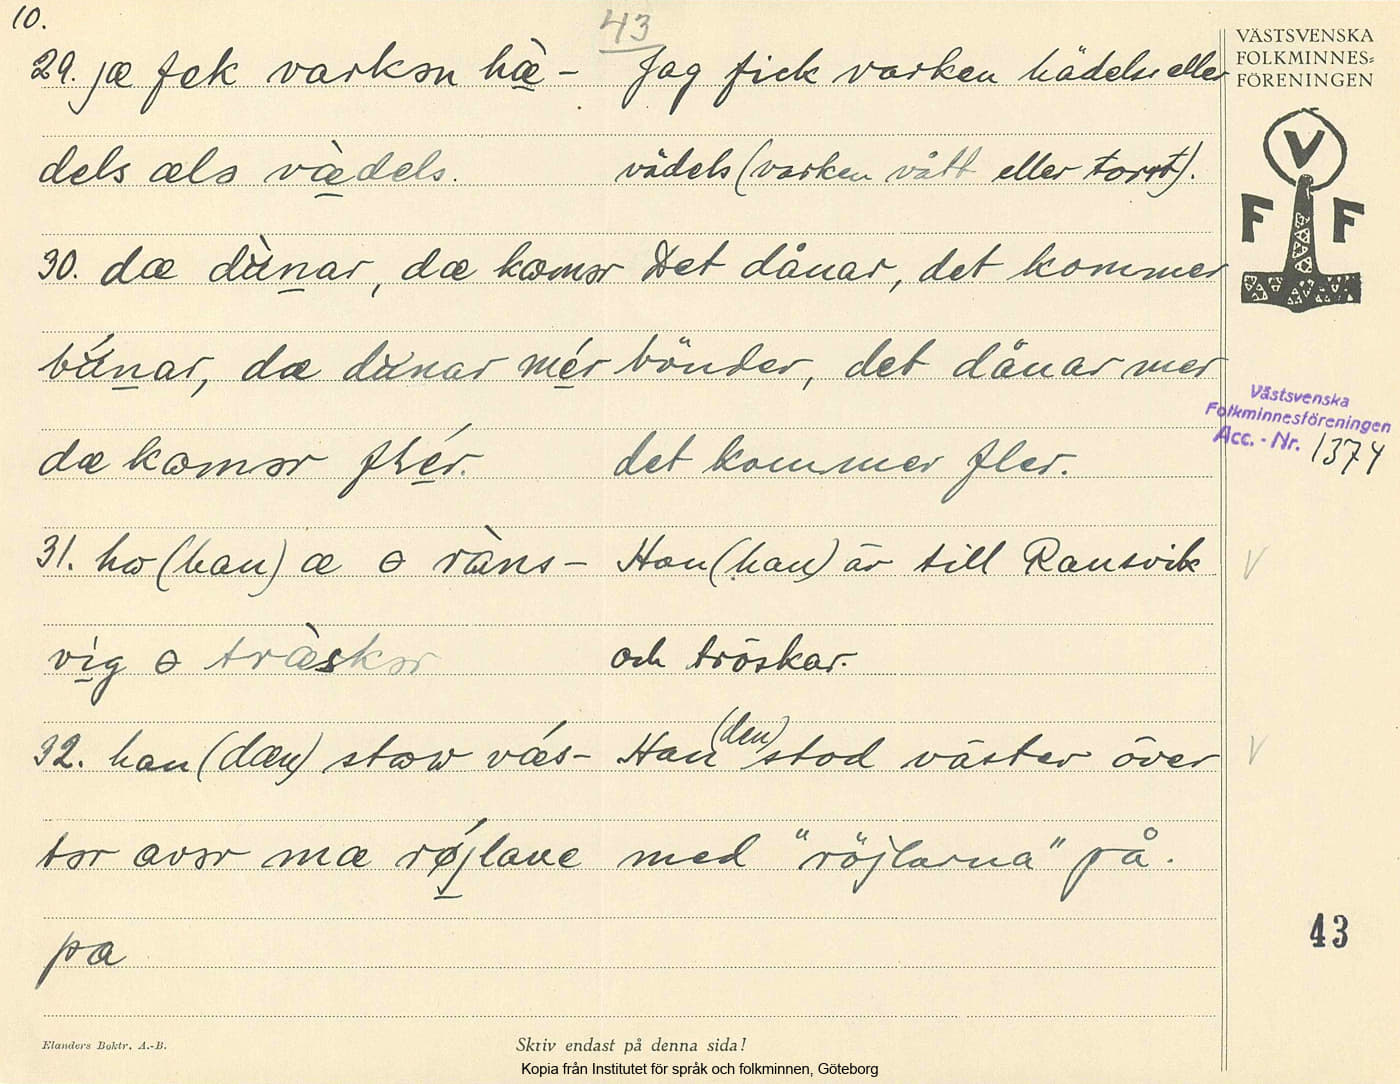 10.
43
29. jæ fek varkən hæ̀- Jag fick varken hädels eller
dels ælə væ̀dels. vädels (varken vått eller torrt).
30. dæ dùnar, dæ kωmər Det dånar, det kommer
búnar, dæ dunar mér bönder, det dånar mer
dæ kωmər flér. det kommer fler.
31. hω (han) æ ɵ ràns- Hon (han) är till Ransvik
vig ɵ træ̀skər och tröskar.
32. han (dæn) stωω vǽs- Han (den) stod väster över
tər avər mæ rǿjlane med "röjlarna" på.
pa
VÄSTSVENSKA
FOLKMINNES=
FÖRENINGEN
V
F F
Västsvenska
Folkminnesföreningen
Acc.-Nr. 1374
V
V
43
Elanders Boktr. A.-B.
Skriv endast på denna sida!
Kopia från Institutet för språk och folkminnen, Göteborg